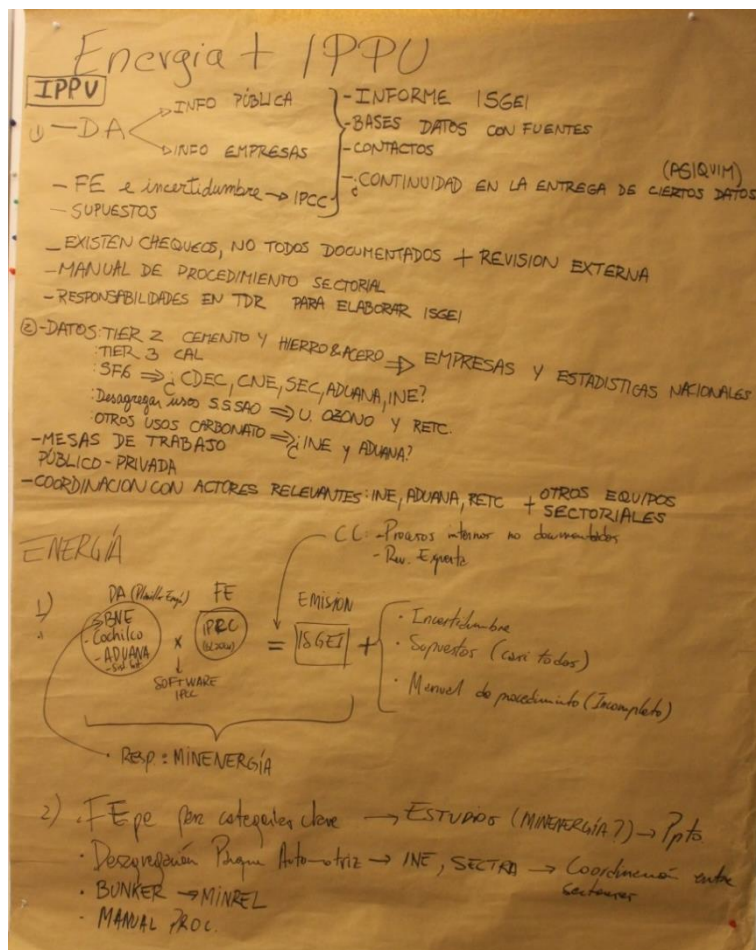 Energía + IPPU
IPPU
1) - DA → INFO PÚBLICA
→ INFO EMPRESAS
- INFORME ISGEI
- BASES DATOS CON FUENTES
- CONTACTOS
- ¿CONTINUIDAD EN LA ENTREGA DE CIERTOS DATOS
(ASIQUIM)
- FE e incertidumbre → IPCC
- SUPUESTOS
- EXISTEN CHEQUEOS, NO TODOS DOCUMENTADOS + REVISION EXTERNA
- MANUAL DE PROCEDIMIENTO SECTORIAL
- RESPONSABILIDADES EN TDR PARA ELABORAR ISGEI
② - DATOS: TIER 2 CEMENTO Y HIERRO & ACERO ⇒ EMPRESAS Y ESTADISTICAS NACIONALES
: TIER 3 CAL
: SF6 ⇒ ¿CDEC, CNE, SEC, ADUANA, INE?
: Desagregar usos S.SAO ⇒ U. OZONO Y RETC.
OTROS USOS CARBONATO ⇒ ¿INE y ADUANA?
- MESAS DE TRABAJO
PÚBLICO - PRIVADA
- COORDINACION CON ACTORES RELEVANTES: INE, ADUANA, RETC + OTROS EQUIPOS
SECTORIALES
ENERGÍA
CC: - Procesos internos no documentados
- Rev. Experta
1)
DA FE EMISIÓN
BNE
- Cochilco
- ADUANA
× IPCC = ISGEI +
↓
SOFTWARE
IPCC
· Incertidumbre
· Supuestos (casi todos)
· Manual de procedimiento (Incompleto)
· RESP: MINENERGÍA
2) · FE pe para categorías clave → ESTUDIOS (MINENERGÍA?) → Ppto
· Desagregación Parque Automotriz → INE, SECTRA → Coordinación entre
sectores
· BUNKER → MINREL
· MANUAL PROC.